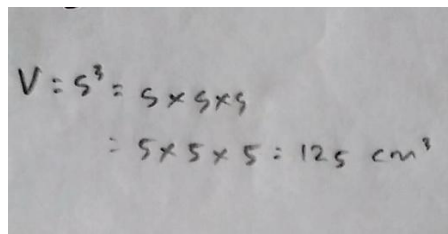 V = s³ = s × s × s
= 5 × 5 × 5 = 125 cm³